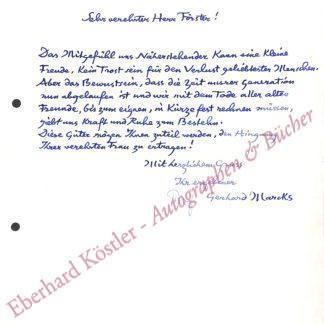 Sehr verehrter Herr Förster!
Das Mitgefühl uns Näherstehender kann eine kleine
Freude, kein Trost sein für den Verlust geliebtester Menschen.
Aber das Bewusstsein, dass die Zeit unsrer Generation
nun abgelaufen ist und wir mit dem Tode aller alten
Freunde, bis zum eignen, in Kürze fest rechnen müssen,
gibt uns Kraft und Ruhe zum Bestehn.
Diese Güter mögen Ihnen zuteil werden, den Hingang
Ihrer verehrten Frau zu ertragen!
Mit herzlichem Gruss
Ihr ergebener
Gerhard Marcks
Eberhard Köstler - Autographen & Bücher